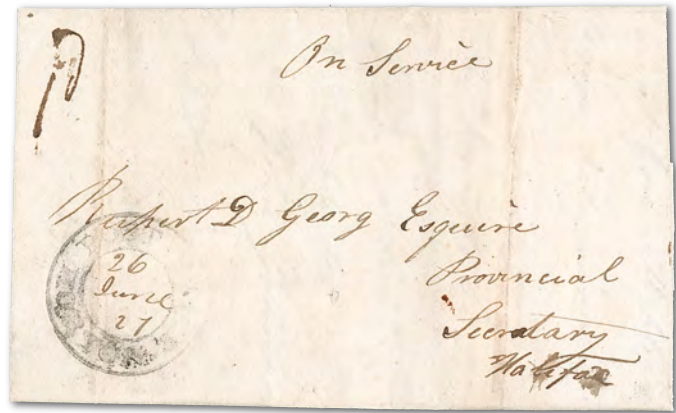 On Service
Rupert D Georg Esquire
Provincial
Secretary
Halifax
26
June
27